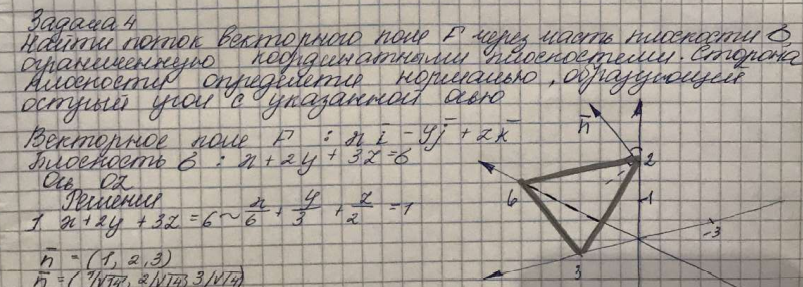 Задача 4
Найти поток векторного поля F через часть плоскости б
ограниченную координатными плоскостями. Сторона
плоскости определяется нормалью, образующей
острый угол с указанной осью
Векторное поле F : x i - y j + z k
Плоскость б : x + 2y + 3z = 6
Ось OZ
Решение
1. x + 2y + 3z = 6 ~ x/6 + y/3 + z/2 = 1
n = (1, 2, 3)
n = (1/√14, 2/√14, 3/√14)
n
2
6
1
-3
3